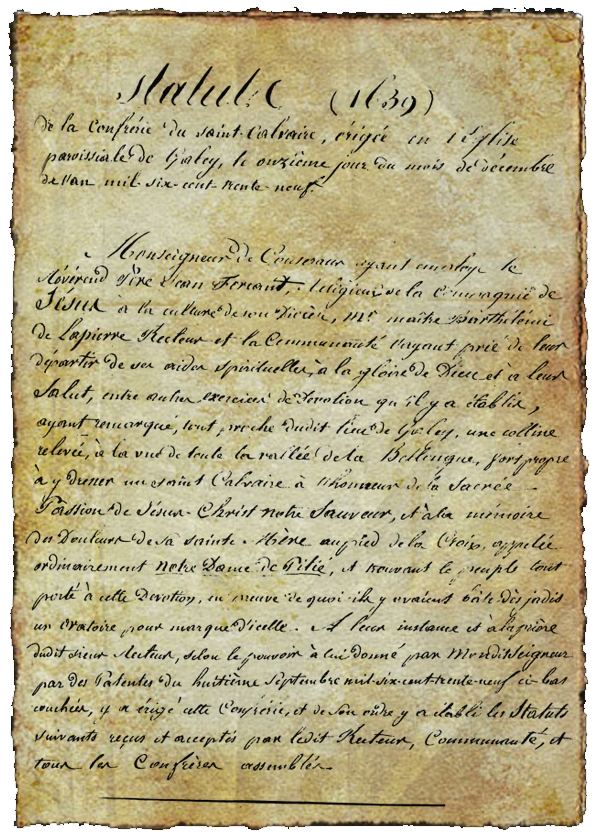 Statuts (1639)
de la Confrérie du saint-Calvaire, érigée en l'Église
paroissiale de Galey, le onzième jour du mois de décembre
de l'an mil-six-cent-trente-neuf.
Monseigneur de Couserans ayant employé le
Révérend Père Jean Ferrant, religieux de la Compagnie de
Jésus à la culture de son Diocèse, Mr maître Barthélemi
de Lapierre Recteur et la Communauté l'ayant prié de leur
départir de ses aides spirituelles, à la gloire de Dieu et à leur
Salut, entre autres exercices de Dévotion qu'il y a établis,
ayant remarqué, tout proche dudit lieu de Galey, une colline
relevée, à la vue de toute la vallée de la Bellongue, fort propre
à y dresser un saint Calvaire à l'honneur de la Sacrée
Passion de Jésus-Christ notre Sauveur, et à la mémoire
des Douleurs de sa sainte Mère au pied de la Croix, appelée
ordinairement Notre Dame de Pitié, et trouvant le peuple tout
porté à cette Dévotion, en preuve de quoi ils y avaient bâti dès jadis
un Oratoire pour marque d'icelle. A leur instance et à la prière
dudit sieur Recteur, selon le pouvoir à lui donné par Monditseigneur
par des Patentes du huitième Septembre mil-six-cent-trente-neuf ci-bas
couchées, y a érigé cette Confrérie, et de son ordre y a établi les Statuts
suivants reçus et acceptés par ledit Recteur, Communauté, et
tous les Confrères assemblés.